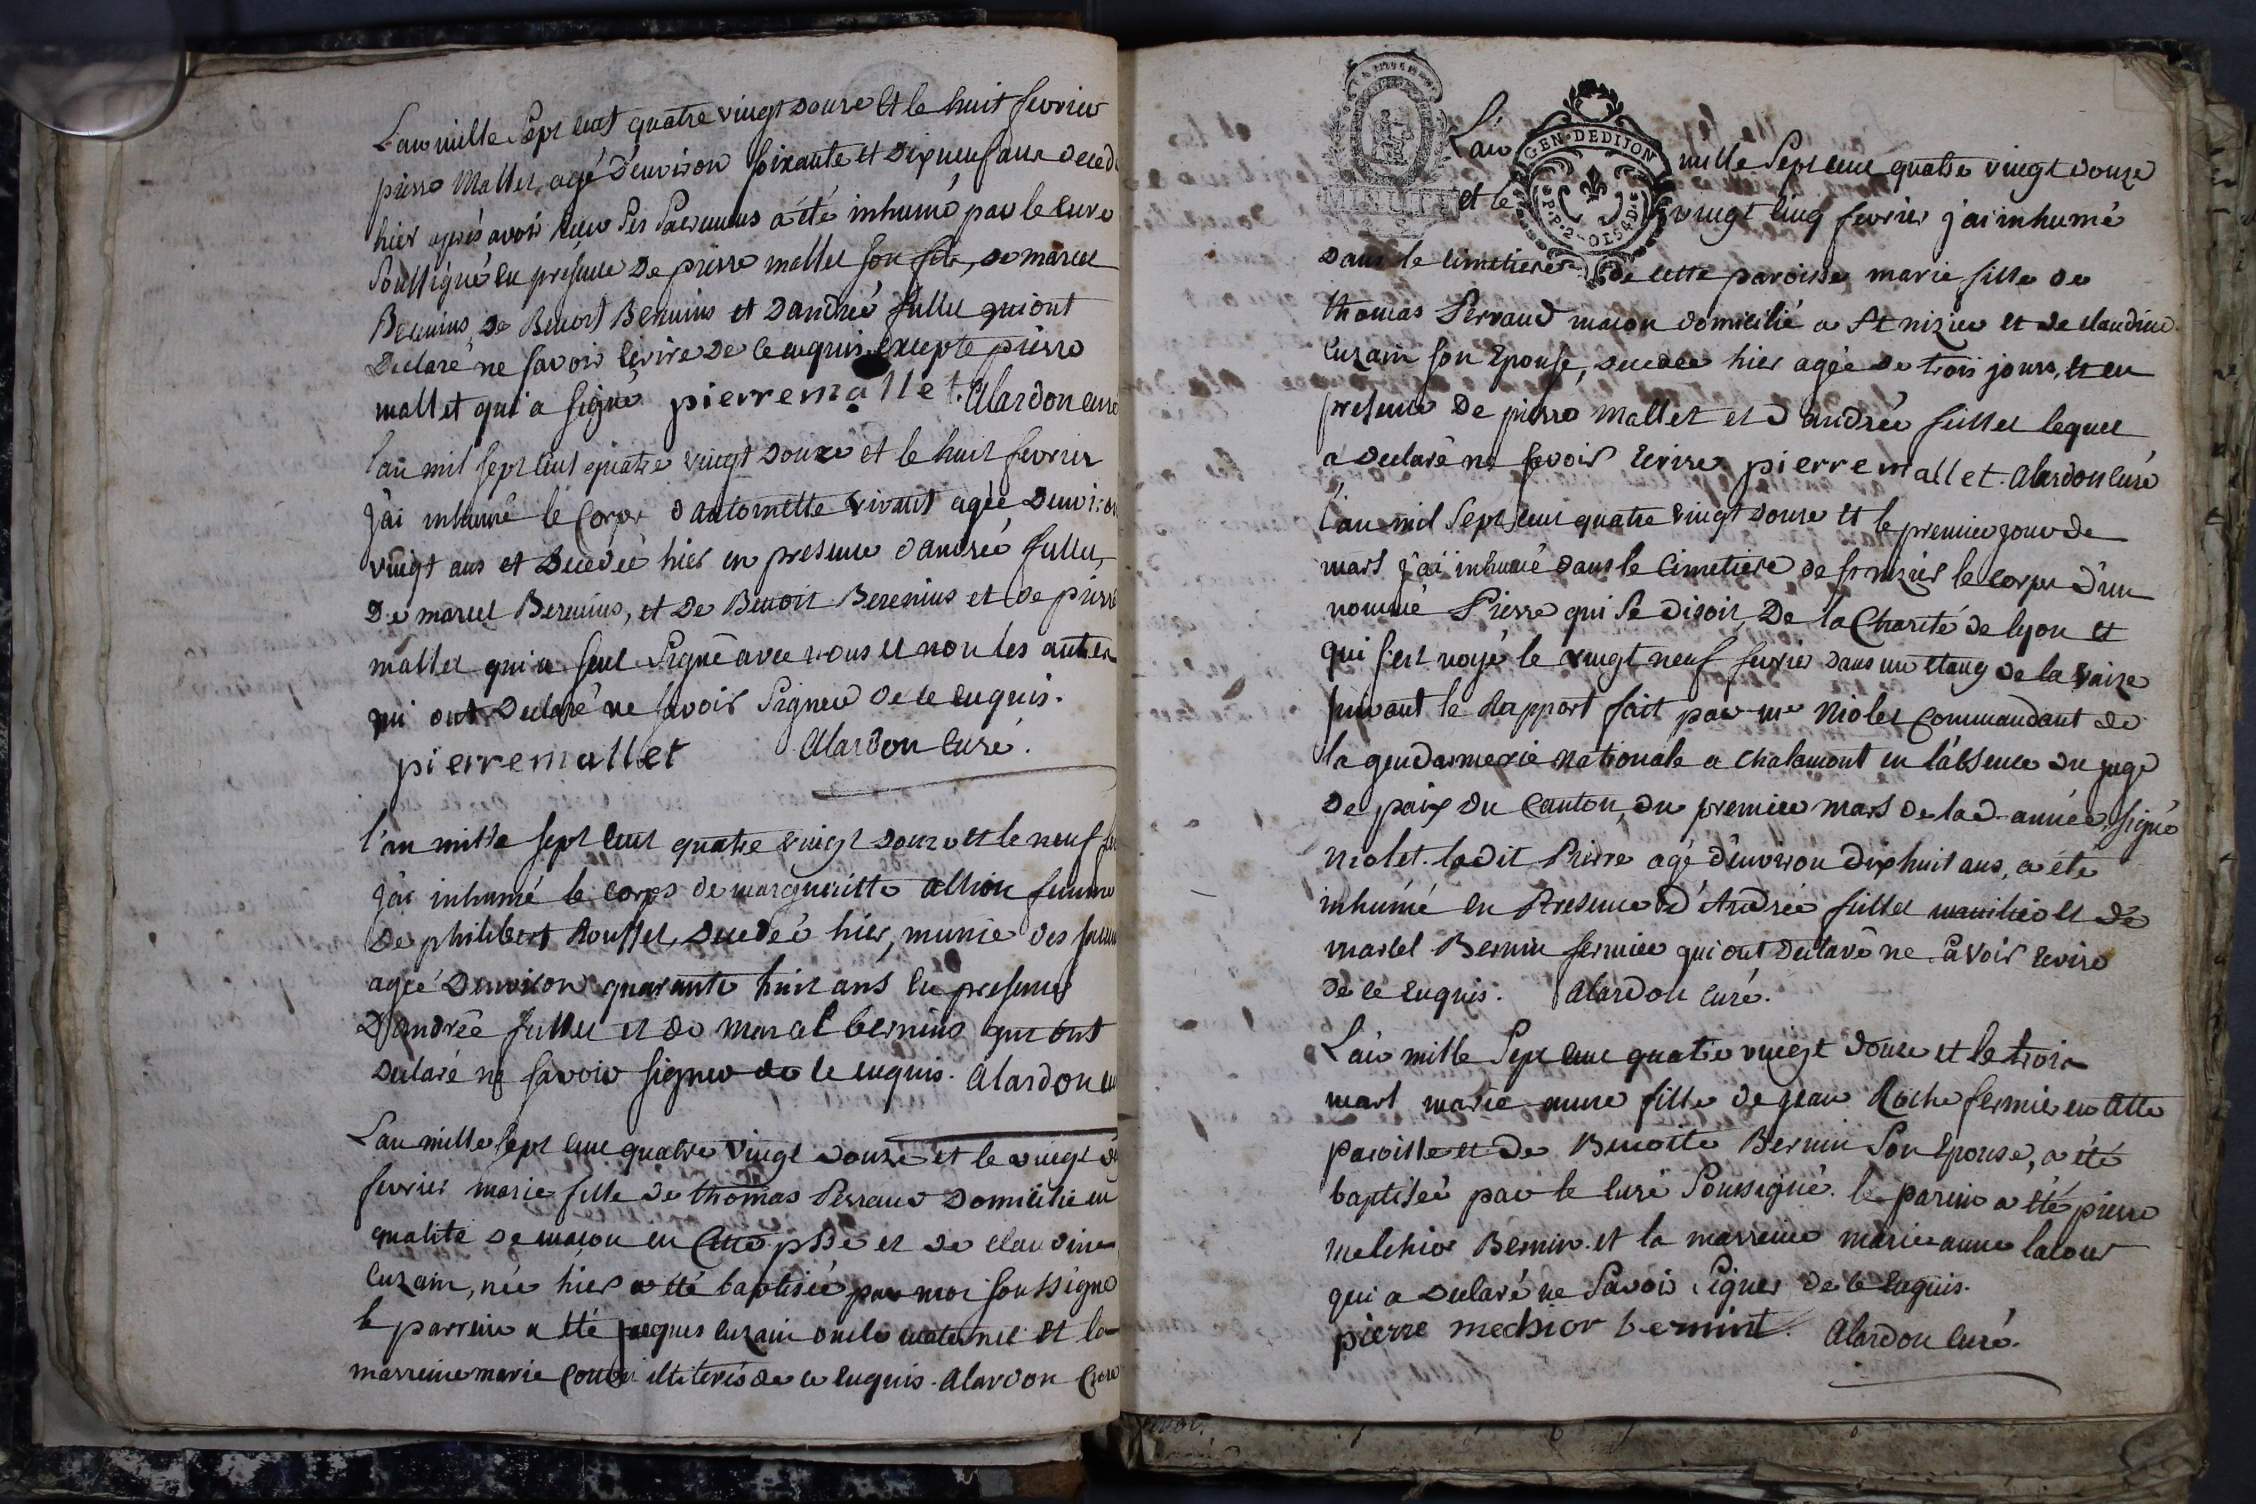 L'an mille Sept cent quatre vingt douze Et le huit fevrier
pierre Mallet, agé d'environ soixante et dix neuf ans deced
hier après avoir recu Ses Sacremens a été inhumé par le curé
Soussigné en présence de pierre mallet son fils, de marcel
de Benoit et d'andré fullet qui ont
Declaré ne savoir ecrire de ce enquis. excepte pierre
mallet qui a signé pierremallet. Alardon curé
l'an mil sept cent quatre vingt douze et le huit fevrier
j'ai inhumé le Corps d'antoinette vivant agée d'environ
vingt ans et Decedée hier en presence d'andré fullet,
De marcel Berenins, et De Benoit Berenins et de pierre
mallet qui a seul Signé avec nous et non les autres
qui ont Declaré ne savoir Signer de ce enquis.
pierremallet Alardon Curé.
l'an mille sept cent quatre vingt douze et le neuf
j'ai inhumé le corps de margueritte femme
De philibert Rousset, Decedée hier, munie des
agée D'environ quarante huit ans en presence
D'andrée fullet et de marcel bernins qui ont
Declaré ne savoir signer de ce enquis. Alardon
L'an mille Sept cent quatre vingt douze et le vingt
fevrier marie fille de thomas Perraud Domicilié en
qualité de macon en Cette psse et de claudine
Cuzain, née hier a été baptisée par moi soussigné
le parrein a été jacques cuzain oncle maternel et la
marreine marie illiterés de ce enquis. Alardon Curé
L'an GEN. DEDIJON mille Sept cent quatre vingt douze
et le vingt cinq fevrier j'ai inhumé
dans le cimetiere de cette paroisse marie fille de
thomas Perraud macon domicilié a St nizier et de claudine
Cuzain son Epouse, decedée hier agée de trois jours, et en
presence De pierre Mallet et d'andrée fullet lequel
a Declaré ne savoir Ecrire. pierremallet. Alardon Curé
l'an mil Sept cent quatre vingt douze et le premier jour de
mars j'ai inhumé dans le Cimetiere de st nizier le corps d'un
nommé Pierre qui se disoit, De la Charité de lyon et
qui s'est noyé le vingt neuf fevrier dans un etang de la
suivant le Rapport fait par mr Niolet Commandant de
la gendarmerie Nationale a Chalamont en l'absence du juge
De paix du Canton, du premier mars de lad. année, signé
Niolet. ledit Pierre agé d'environ dix huit ans, a été
inhumé en Presence d'Andrée fullet et de
marcel Bernin fermier qui ont declaré ne savoir Ecrire
de ce enquis. Alardon Curé.
L'an mille Sept cent quatre vingt douze et le trois
mars marie fille de jean Roche fermier en Cette
paroisse et de Benoite Bernin Son Epouse, a été
baptisée par le Curé Soussigné. le parein a été pierre
melchior Bernin. et la marreine marieanne lacour
qui a Declaré ne Savoir Signer de ce enquis.
pierre mechior bernint. Alardon Curé.